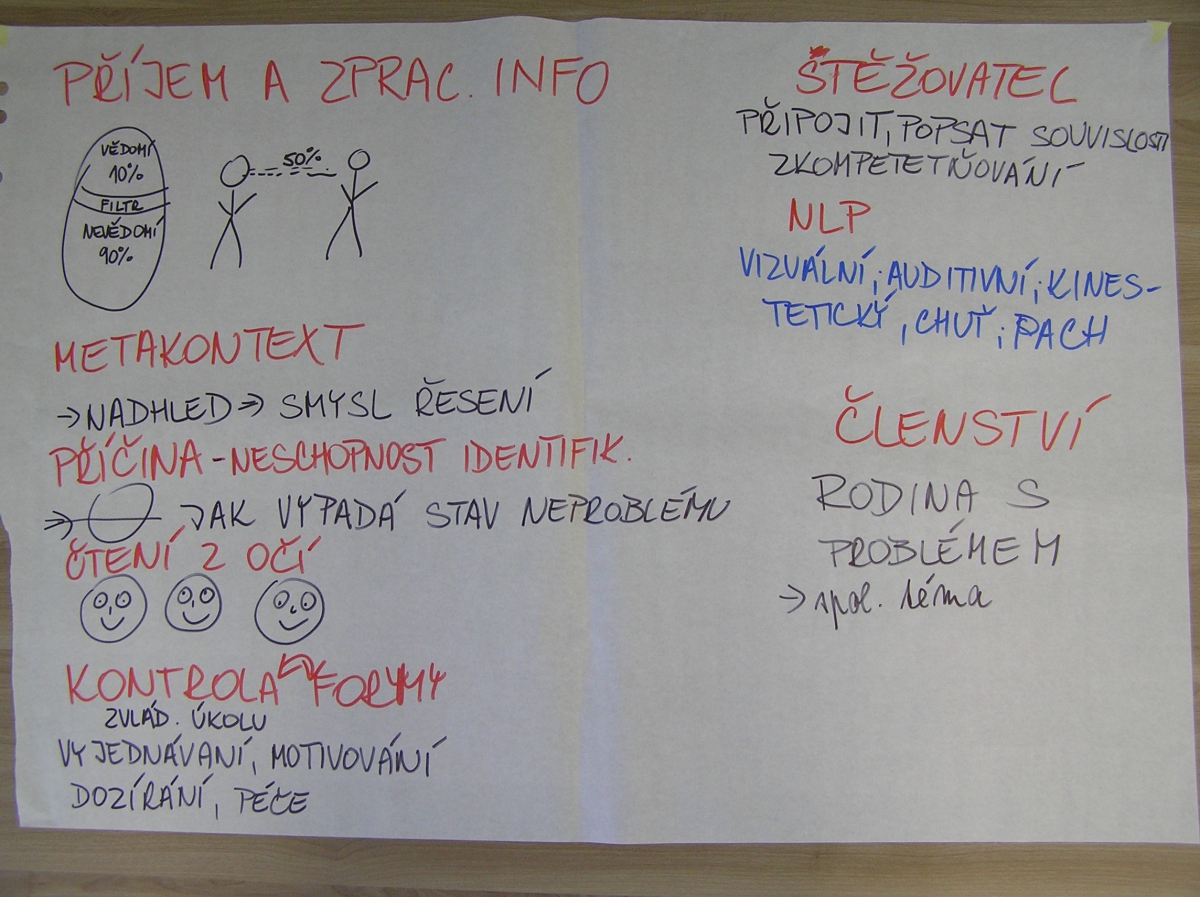 PŘÍJEM A ZPRAC. INFO
VĚDOMÍ
10%
FILTR
NEVĚDOMÍ
90%
50%
METAKONTEXT
→NADHLED→ SMYSL ŘESENÍ
PŘÍČINA-NESCHOPNOST IDENTIFIK.
JAK VYPADÁ STAV NEPROBLÉMU
ČTENÍ Z OČÍ
KONTROLA FORMY
ZVLÁD. ÚKOLU
VYJEDNÁVANÍ, MOTIVOVÁNÍ
DOZÍRÁNÍ, PÉČE
ŠTĚŽOVATEL
PŘIPOJIT, POPSAT SOUVISLOSTI
ZKOMPETETŇOVÁNÍ
NLP
VIZUÁLNÍ; AUDITIVNÍ; KINES-
TETICKÝ, CHUŤ; PACH
ČLENSTVÍ
RODINA S
PROBLÉMEM
→ spol. téma